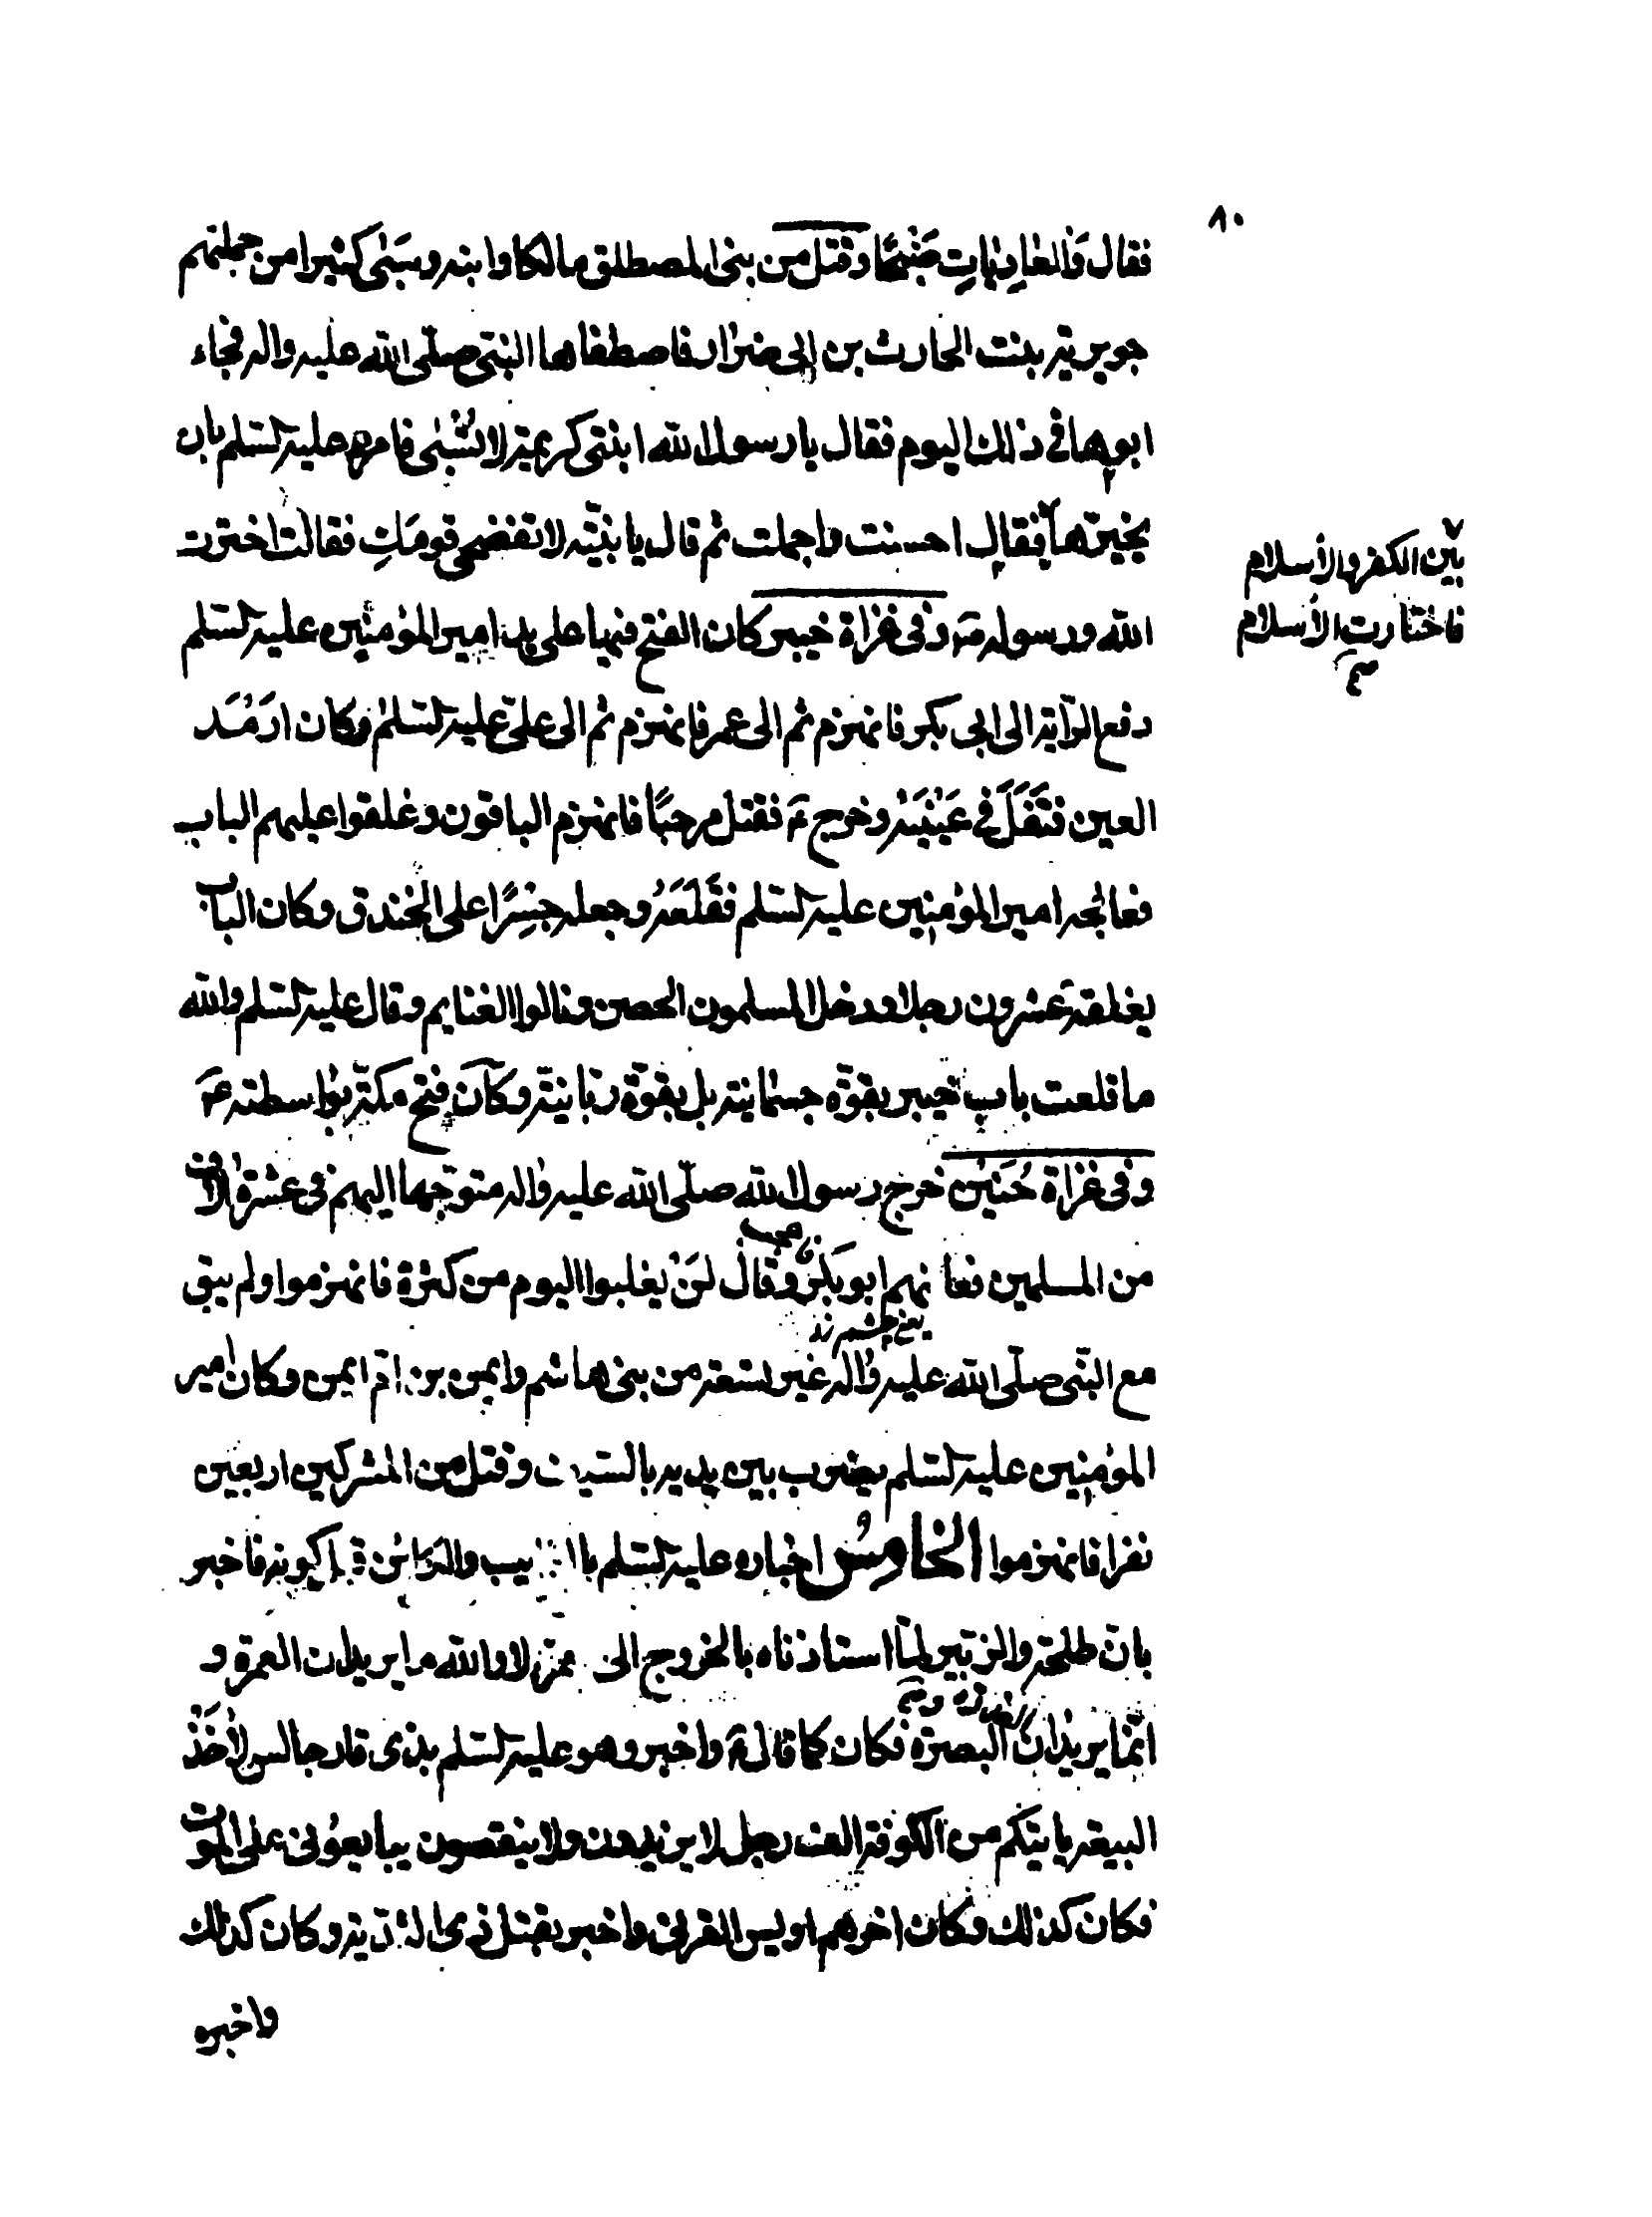 ٨٠
فقال والعادیات ضبحًا وقتل من بنی المصطلق مالکا وابنه وسبی کثیرا من جملتهم
جویریة بنت الحارث بن ابی ضرار فاصطفاها النبی صلّی الله علیه واله فجاء
ابوها فی ذلک الیوم فقال یا رسول الله ابنتی کریمة لا تُسْبٰی فامره علیه السّلم بان
یخیّرها فقال احسنت واجملت ثم قال یا بنیّه لا تفضحی قومَکِ فقالت اخترت
بین الکفر والأسلام
فاختارت الأسلام
الله ورسوله وفی غزاة خیبر کان الفتح فیها علی ید امیر المؤمنین علیه السّلم
دفع الرّایة الی ابی بکر فانهزم ثم الی عمر فانهزم ثم الی علیّ علیه السّلم وکان ارمَد
العین فتَفَلَ فی عَیْنَیْه وخرج فقتل مرحبًا فانهزم الباقون وغلقوا علیهم الباب
فعالجه امیر المؤمنین علیه السّلم فقَلَعَهُ وجعله جِسْرًا علی الخندق وکان الباب
یغلقه عشرون رجلا ودخل المسلمون الحصن ونالوا الغنایم وقال علیه السّلم والله
ما قلعت باب خیبر بقوّه جسمانیة بل بقوّة ربّانیّة وکان فتح مکّة بواسطته
وفی غزاة حُنَیْن خرج رسول الله صلّی الله علیه واله متوجّها الیهم فی عشرة الاف
من المسلمین فعانهم ابو بکر وقال لَنْ یغلبوا الیوم من کثرة فانهزموا ولم یبق
یعنی چشم زد
مع النّبی صلّی الله علیه واله غیر تسعة من بنی هاشم وایمن بن امّ ایمن وکان امیر
المؤمنین علیه السّلم یضرب بین یدیه بالسّیف وقتل من المشرکین اربعین
نفرا فانهزموا الخامِسُ اخباره علیه السّلم بالغیب والکاین قبل کونه فاخبر
بانّ طلحة والزّبیر لمّا استاذناه بالخروج الی العمرة لا والله ما یریدان العمرة و
انّما یریدان البصرة فکان کما قال واخبر وهو علیه السّلم بذی قار جالس لأَخْذ
البیعة یاتیکم من الکوفة الف رجل لا یزیدون ولا ینقصون یبایعونی علی الموت
فکان کذلک وکان اخرهم اویس القرنی واخبر بقتل ذی الثدیة وکان کذلک
واخبره